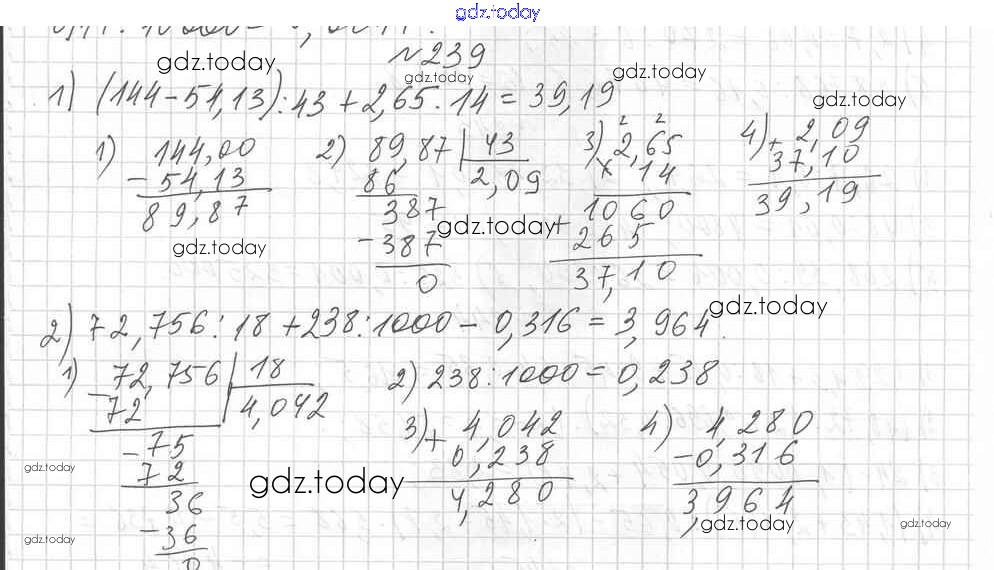 gdz.today
№239
gdz.today
gdz.today
gdz.today
1) (144-54,13):43+2,65·14=39,19
gdz.today
1) 144,00 2) 89,87 | 43 3) 2 2 4) + 2,09
- 54,13 86 2,09 2,65 37,10
89,87 387 × 14 39,19
gdz.today -387 gdz.today 1060
0 + 265
37,10
gdz.today
2) 72,756:18+238:1000-0,316=3,964.
1) -72,756 | 18 2) 238:1000=0,238
72 4,042 3) + 4,042 4) 4,280
-75 0,238 -0,316
72 4,280 3,964
gdz.today gdz.today gdz.today gdz.today
36
-36
gdz.today
0